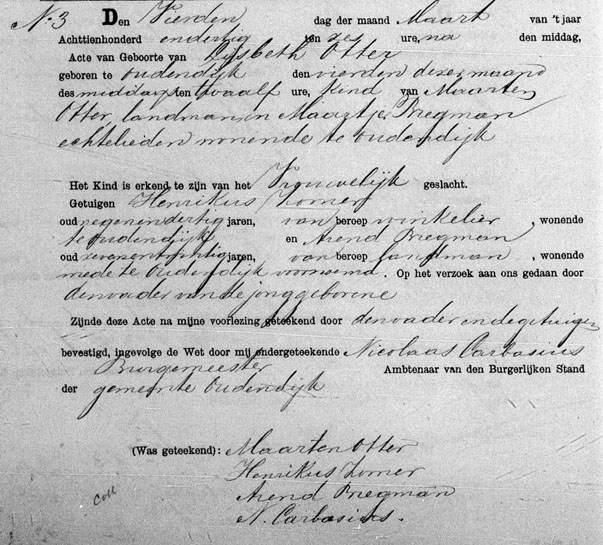 N. 3 Den Vierden dag der maand Maart van 't jaar
Achttienhonderd endertig ten zes ure, na den middag,
Acte van Geboorte van Lijsbeth Otter
geboren te Oudendijk den vierden dezer maand
des middags ten twaalf ure, kind van Maarten
Otter, landman, en Maartje Bregman
echtelieden wonende te Oudendijk
Het Kind is erkend te zijn van het Vrouwelijk geslacht.
Getuigen Henrikus Zomer
oud negenendertig jaren, van beroep winkelier, wonende
te Oudendijk en Arend Bregman
oud jaren, van beroep landman, wonende
mede te Oudendijk voornoemd. Op het verzoek aan ons gedaan door
den vader van de jonggeborene
Zijnde deze Acte na mijne voorlezing geteekend door den vader en de getuigen
bevestigd, ingevolge de Wet door mij ondergeteekende Nicolaas Carbasius
Burgemeester Ambtenaar van den Burgerlijken Stand
der gemeente Oudendijk
(Was geteekend): Maarten Otter
Henrikus Zomer
Arend Bregman
Coll N. Carbasius.